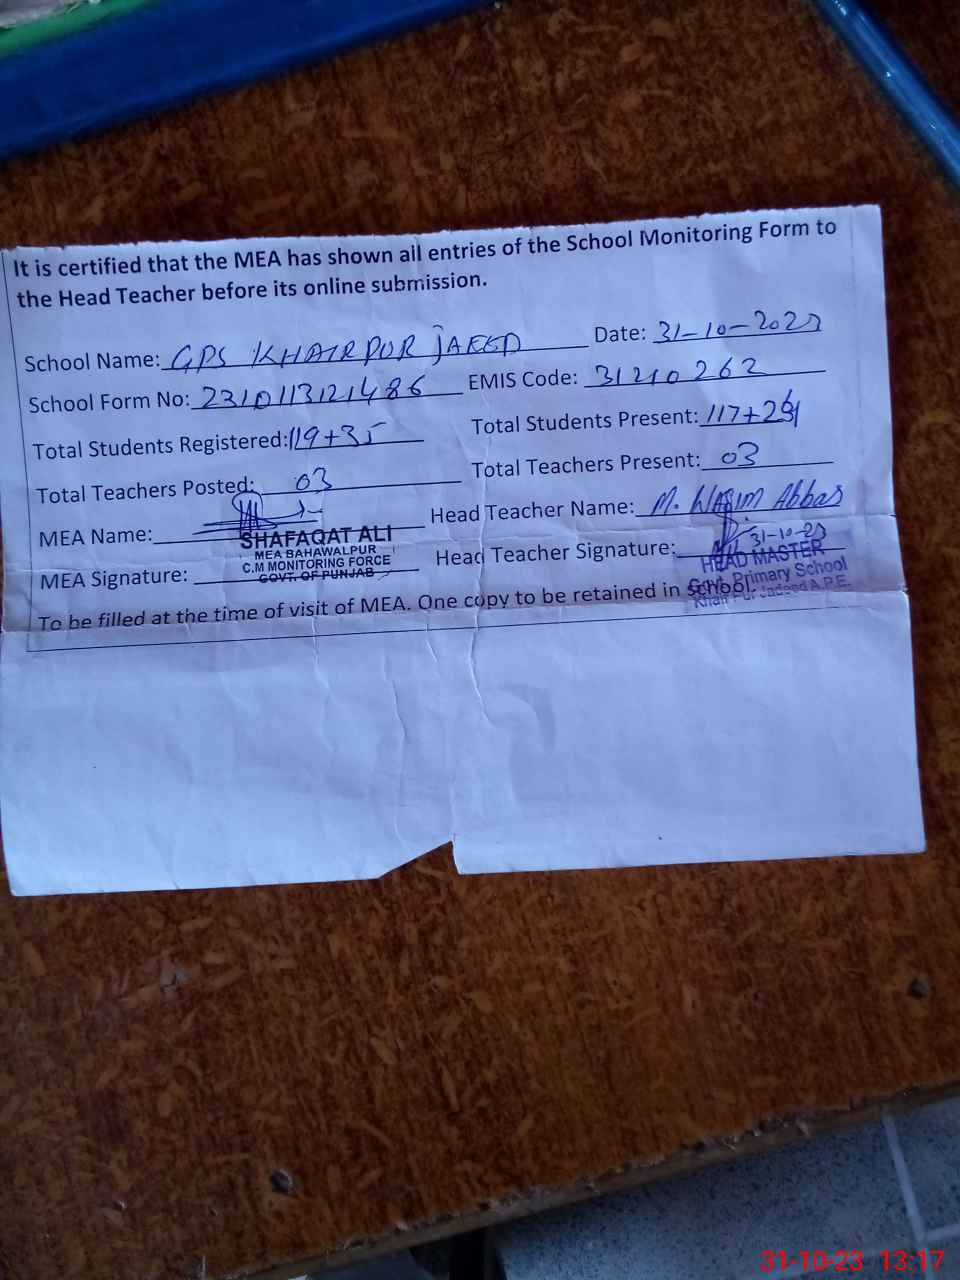 It is certified that the MEA has shown all entries of the School Monitoring Form to
the Head Teacher before its online submission.
School Name: GPS KHAIRPUR JAEED Date: 31-10-2023
School Form No: 2310113121486 EMIS Code: 31210262
Total Students Registered: 119+35 Total Students Present: 117+
Total Teachers Posted: 03 Total Teachers Present: 03
MEA Name: Head Teacher Name: M. Wasim Abbas
SHAFAQAT ALI
MEA BAHAWALPUR
C.M MONITORING FORCE
GOVT. OF PUNJAB
MEA Signature: Head Teacher Signature:
31-10-23
HEAD MASTER
Govt. Primary School
Khair Pur Jadeed A.P.E.
To be filled at the time of visit of MEA. One copy to be retained in school.
31-10-23 13:17